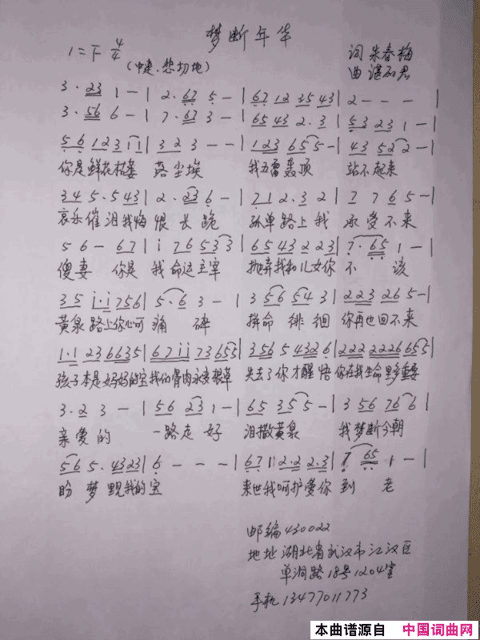 梦断年华
1=F 4/4
(中速.悲切地)
词 朱春梅
曲 湛石君
3·23 1 - | 2·67 5 - | 67 12 15 43 | 2 - - - |
3·56 6 - | 7·67 3 - | 65 43 2·3 | 5 3 23 1 - |
5 6 1 2 3 1 1 | 3 2 3 - - | 1 2 3 6 5 5 - | 4 3 5 2 2 - |
你是鲜花枯萎 落尘埃 我五雷轰顶 站不起来
3 4 5·5 4 3 | 2·23 6 - | 7 1 2·3 2 | 7 7 6 5 - |
哀乐催泪我悔恨长跪 孤单路上我 承受不来
5 6 - 6 7 | i 7 6 5 3 3 | 6 5 4 3 2 2 3 | 7·65 1 - |
傻妻 你是 我命运主宰 抛弃我和儿女你 不 该
3 5 i·i 7 5 6 | 5·6 3 - | 3 5 6 5 4 3 | 2 2 3 2 6 5 - |
黄泉路上伤心可 痛 碑 拚命 徘徊 你再也回不来
1·1 2 3 6 6 3 5 | 6 7 i i 7 3 6 5 5 | 3 5 6 5 4 3 2 6 | 2 2 2 2 2 2 6 6 5 5 |
失去了你才醒悟 你在我生命里多重要
3·2 3 - | 5 6 2 3 1 - | 6 5 3 5 5 - | 3 5 6 7 6 6 |
亲爱的 一路走好 泪撒黄泉 我梦断今朝
5 6 5·4 3 2 3 | 6 - - - | 6 7 1 2·2 2·3 | 7 6 5 1 - |
盼 梦 见我的宝 来世我呵护爱你 到 老
邮编430022
地址湖北省武汉市江汉区
单洞路18号1204室
手机13477011773
本曲谱源自 中国词曲网